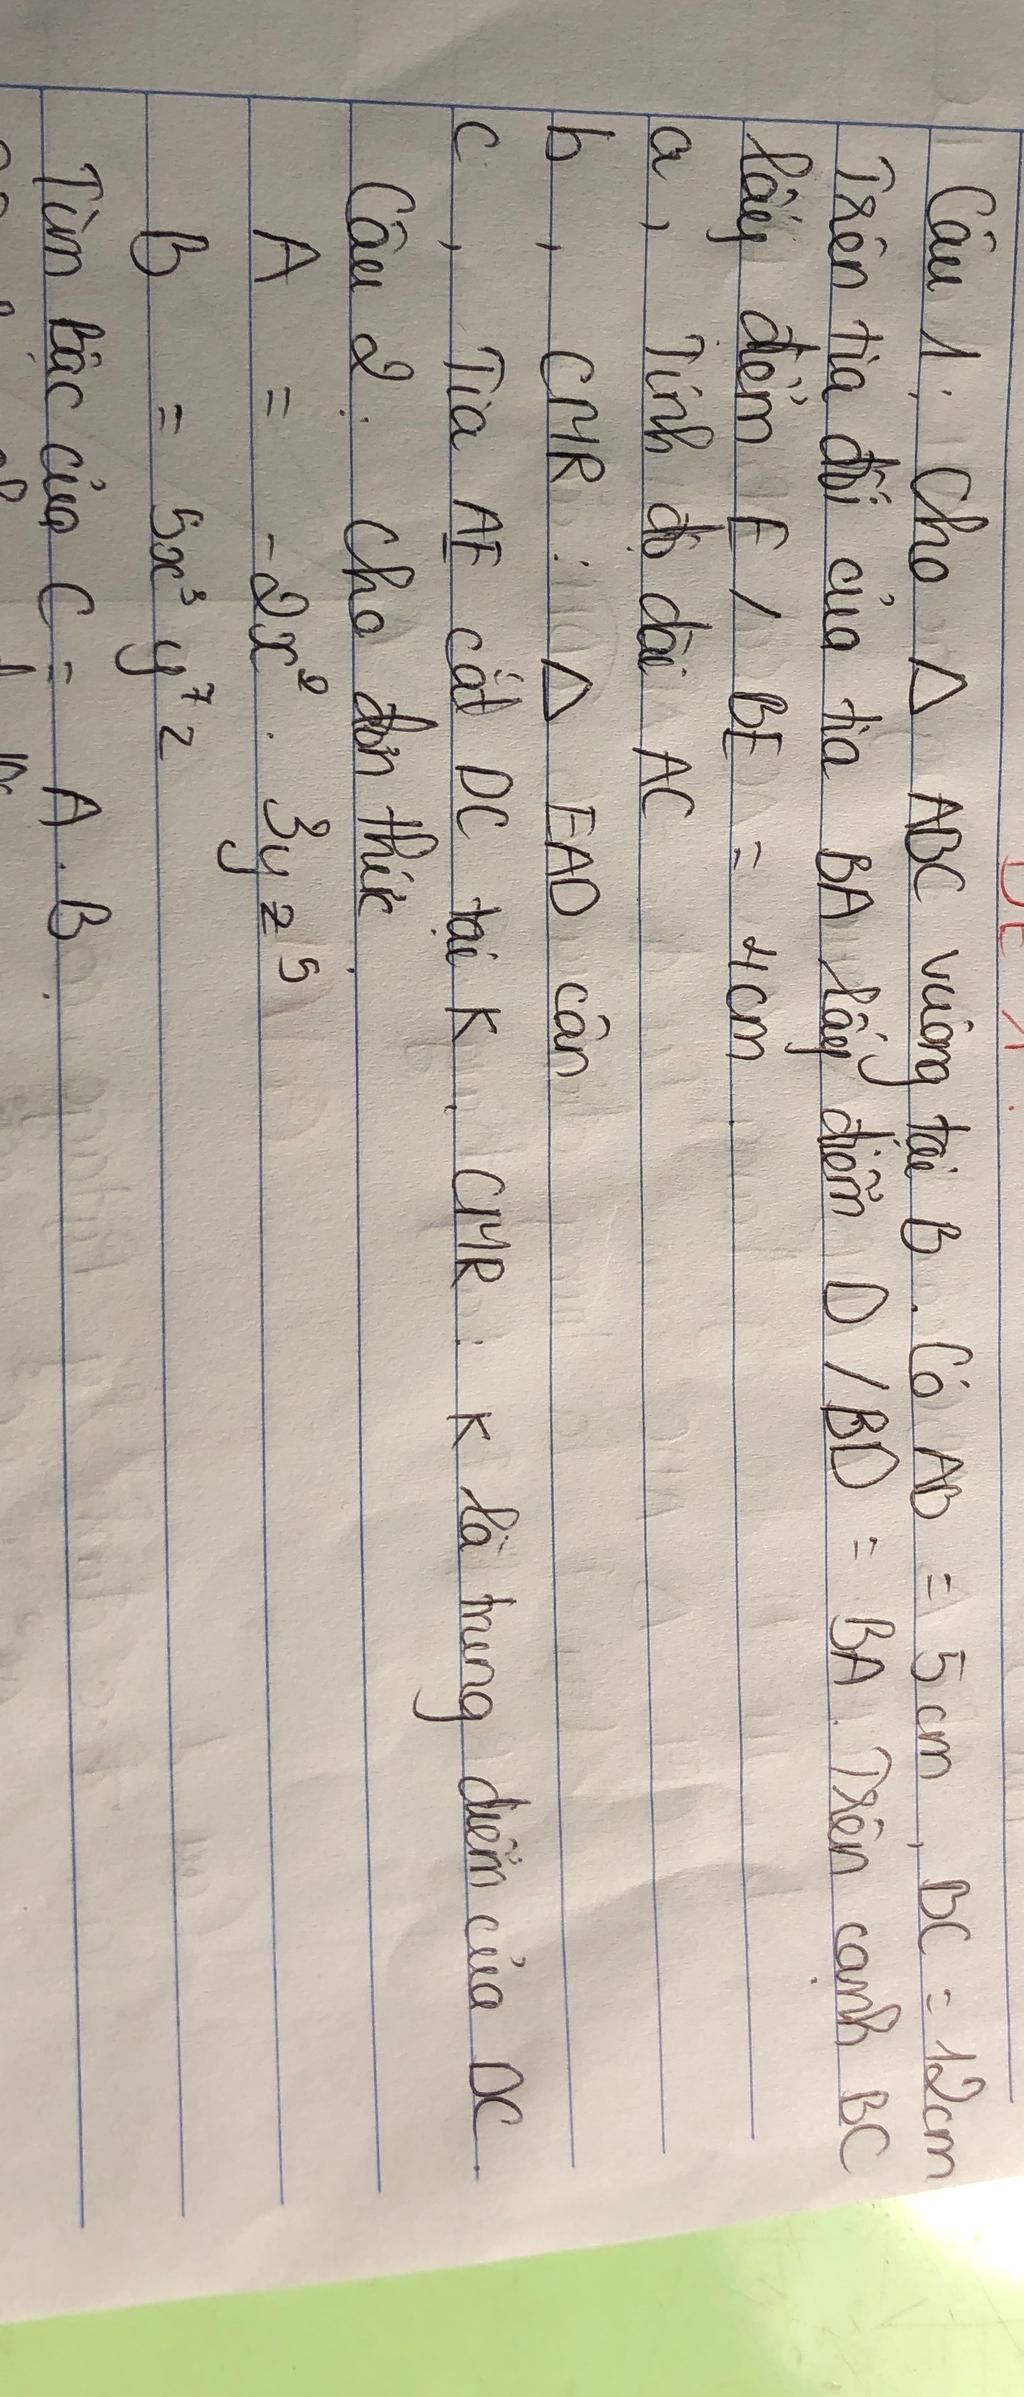 ĐỀ 1:
Câu 1: Cho △ ABC vuông tại B. Có AB = 5cm, BC = 12cm
Trên tia đối của tia BA lấy điểm D / BD = BA. Trên cạnh BC
lấy điểm E / BE = 4cm.
a, Tính độ dài AC
b, CMR: △ EAD cân
c, Tia AE cắt DC tại K. CMR: K là trung điểm của DC.
Câu 2: Cho đơn thức.
A = -2x². 3yz⁵
B = 5x³y⁷z
Tìm bậc của C = A.B.